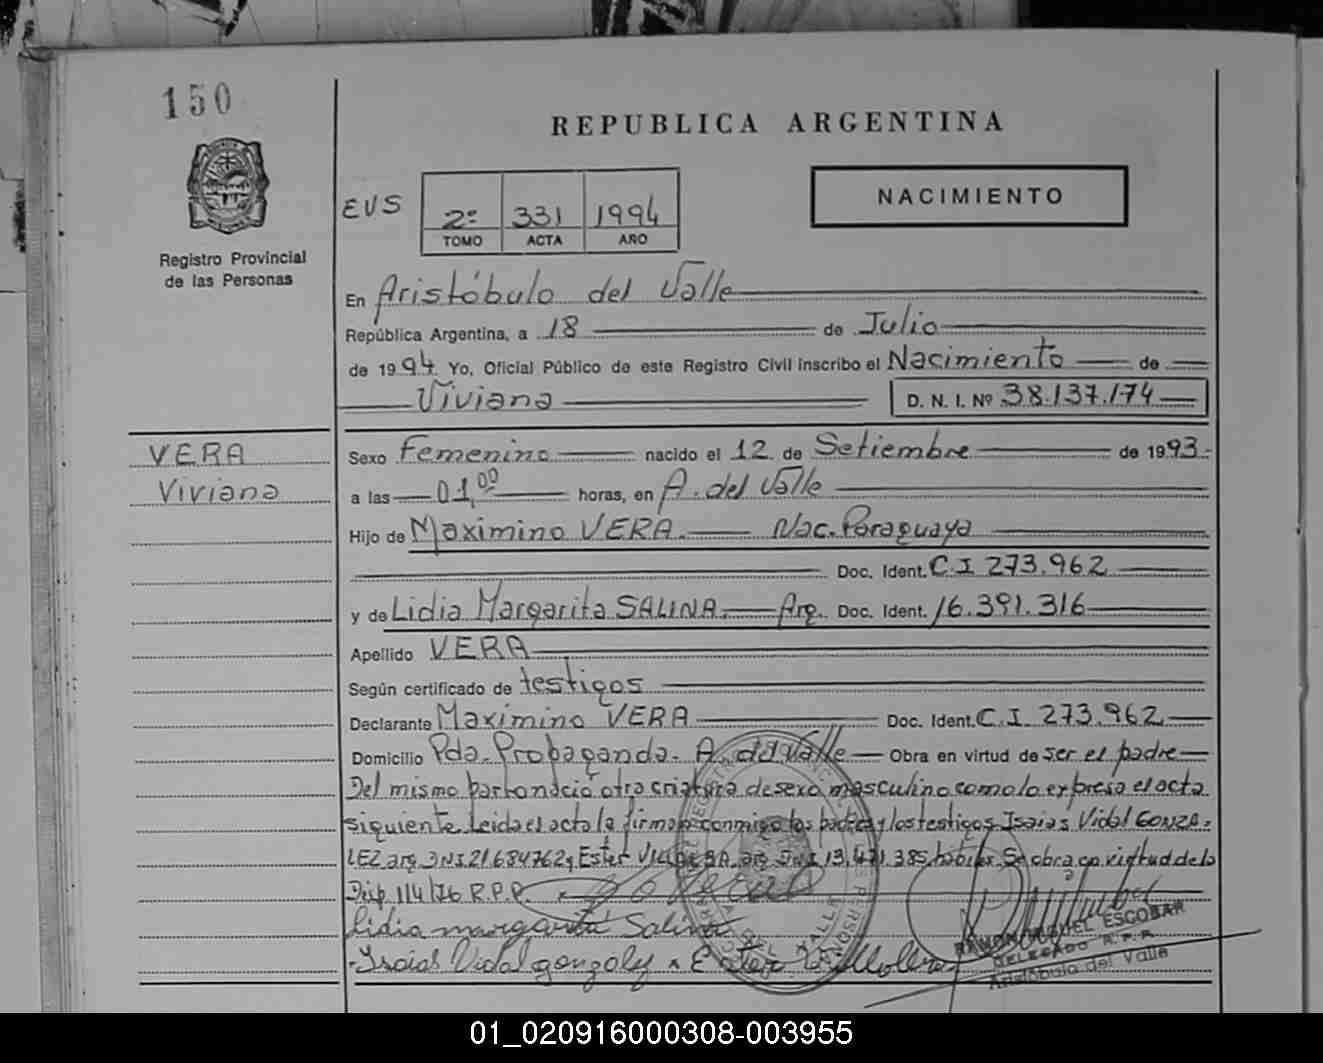 150
REPUBLICA ARGENTINA
NACIMIENTO
EVS 2º 331 1994
TOMO ACTA AÑO
Registro Provincial
de las Personas
En Aristóbulo del Valle
República Argentina, a 18 de Julio
de 1994. Yo, Oficial Público de este Registro Civil inscribo el Nacimiento de
Viviana D. N. I. Nº 38.137.174
VERA
Viviana
Sexo Femenino nacido el 12 de Setiembre de 1993
a las 01,00 horas, en A. del Valle
Hijo de Maximino VERA. Nac. Paraguaya
Doc. Ident. C.I 273.962
y de Lidia Margarita SALINA. Arg. Doc. Ident. 16.391.316
Apellido VERA
Según certificado de testigos
Declarante Maximino VERA Doc. Ident. C.I. 273.962
Domicilio Pda. Propaganda. A. del Valle Obra en virtud de ser el padre
Del mismo parto nació otra criatura de sexo masculino como lo expresa el acta
siguiente. Leida el acta la firman conmigo los padres y los testigos Isaias Vidal GONZA-
LEZ arg. DNI. 21.684762 y Ester arg. DNI 13.471.385, habiles. Se obra en virtud de la
Disp. 114/76 R.P.P.
Lidia margarita Salina
Isaias Vidal gonzalez Ester
RAMON MIGUEL ESCOBAR
DELEGADO R.P.P.
Aristóbulo del Valle
01_020916000308-003955